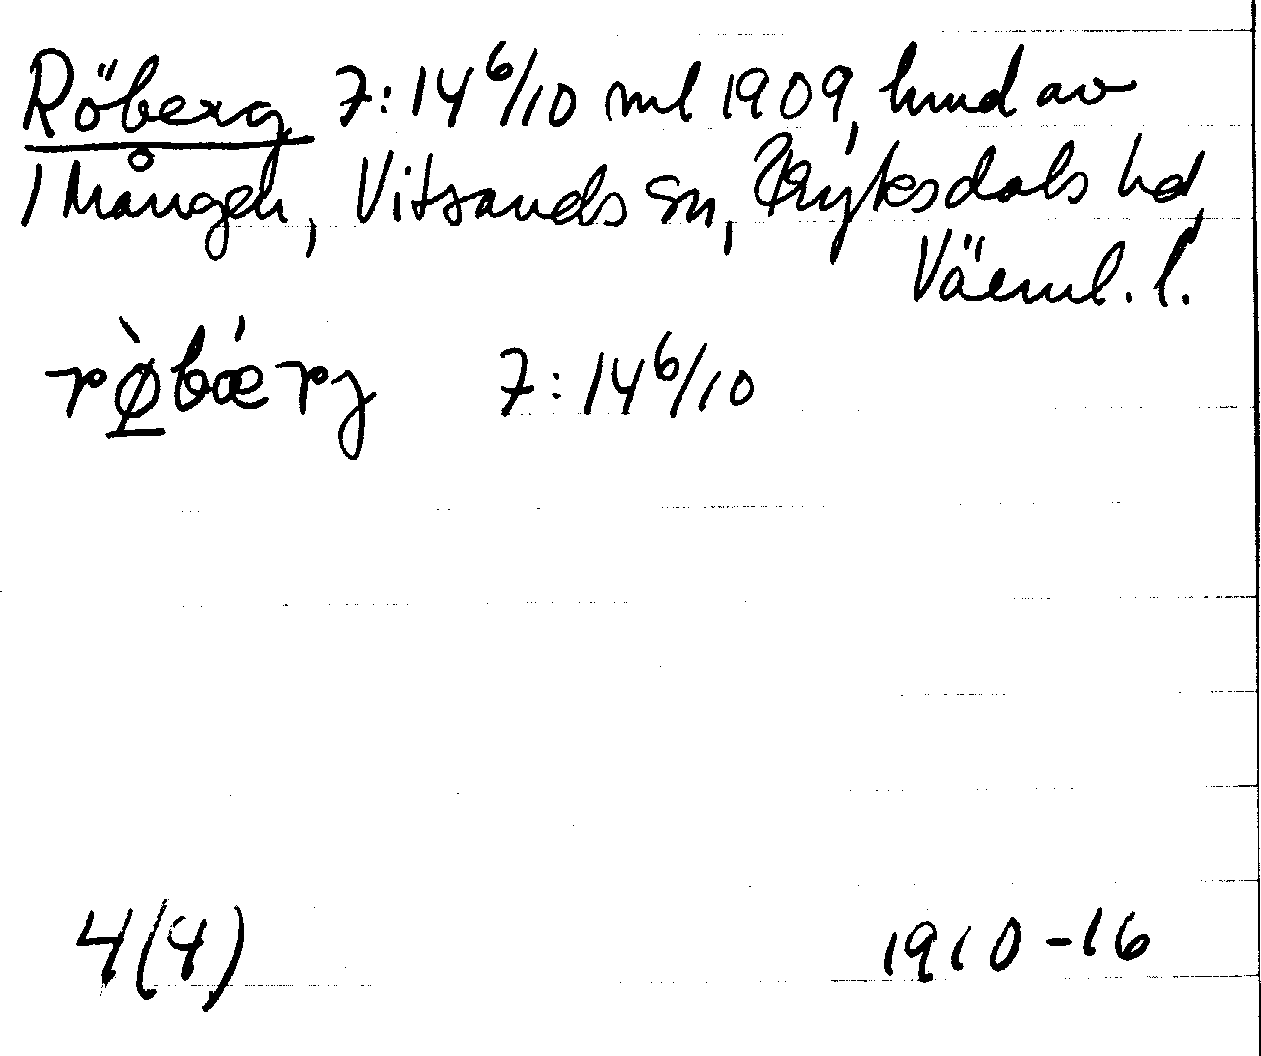 Röberg 7:14 6/10 ml 1909, hmd av
1 Mången, Vitsands sn, Fryksdals hd,
Värml. l.
rø̀bǽrj 7:14 6/10
4(4) 1910-16